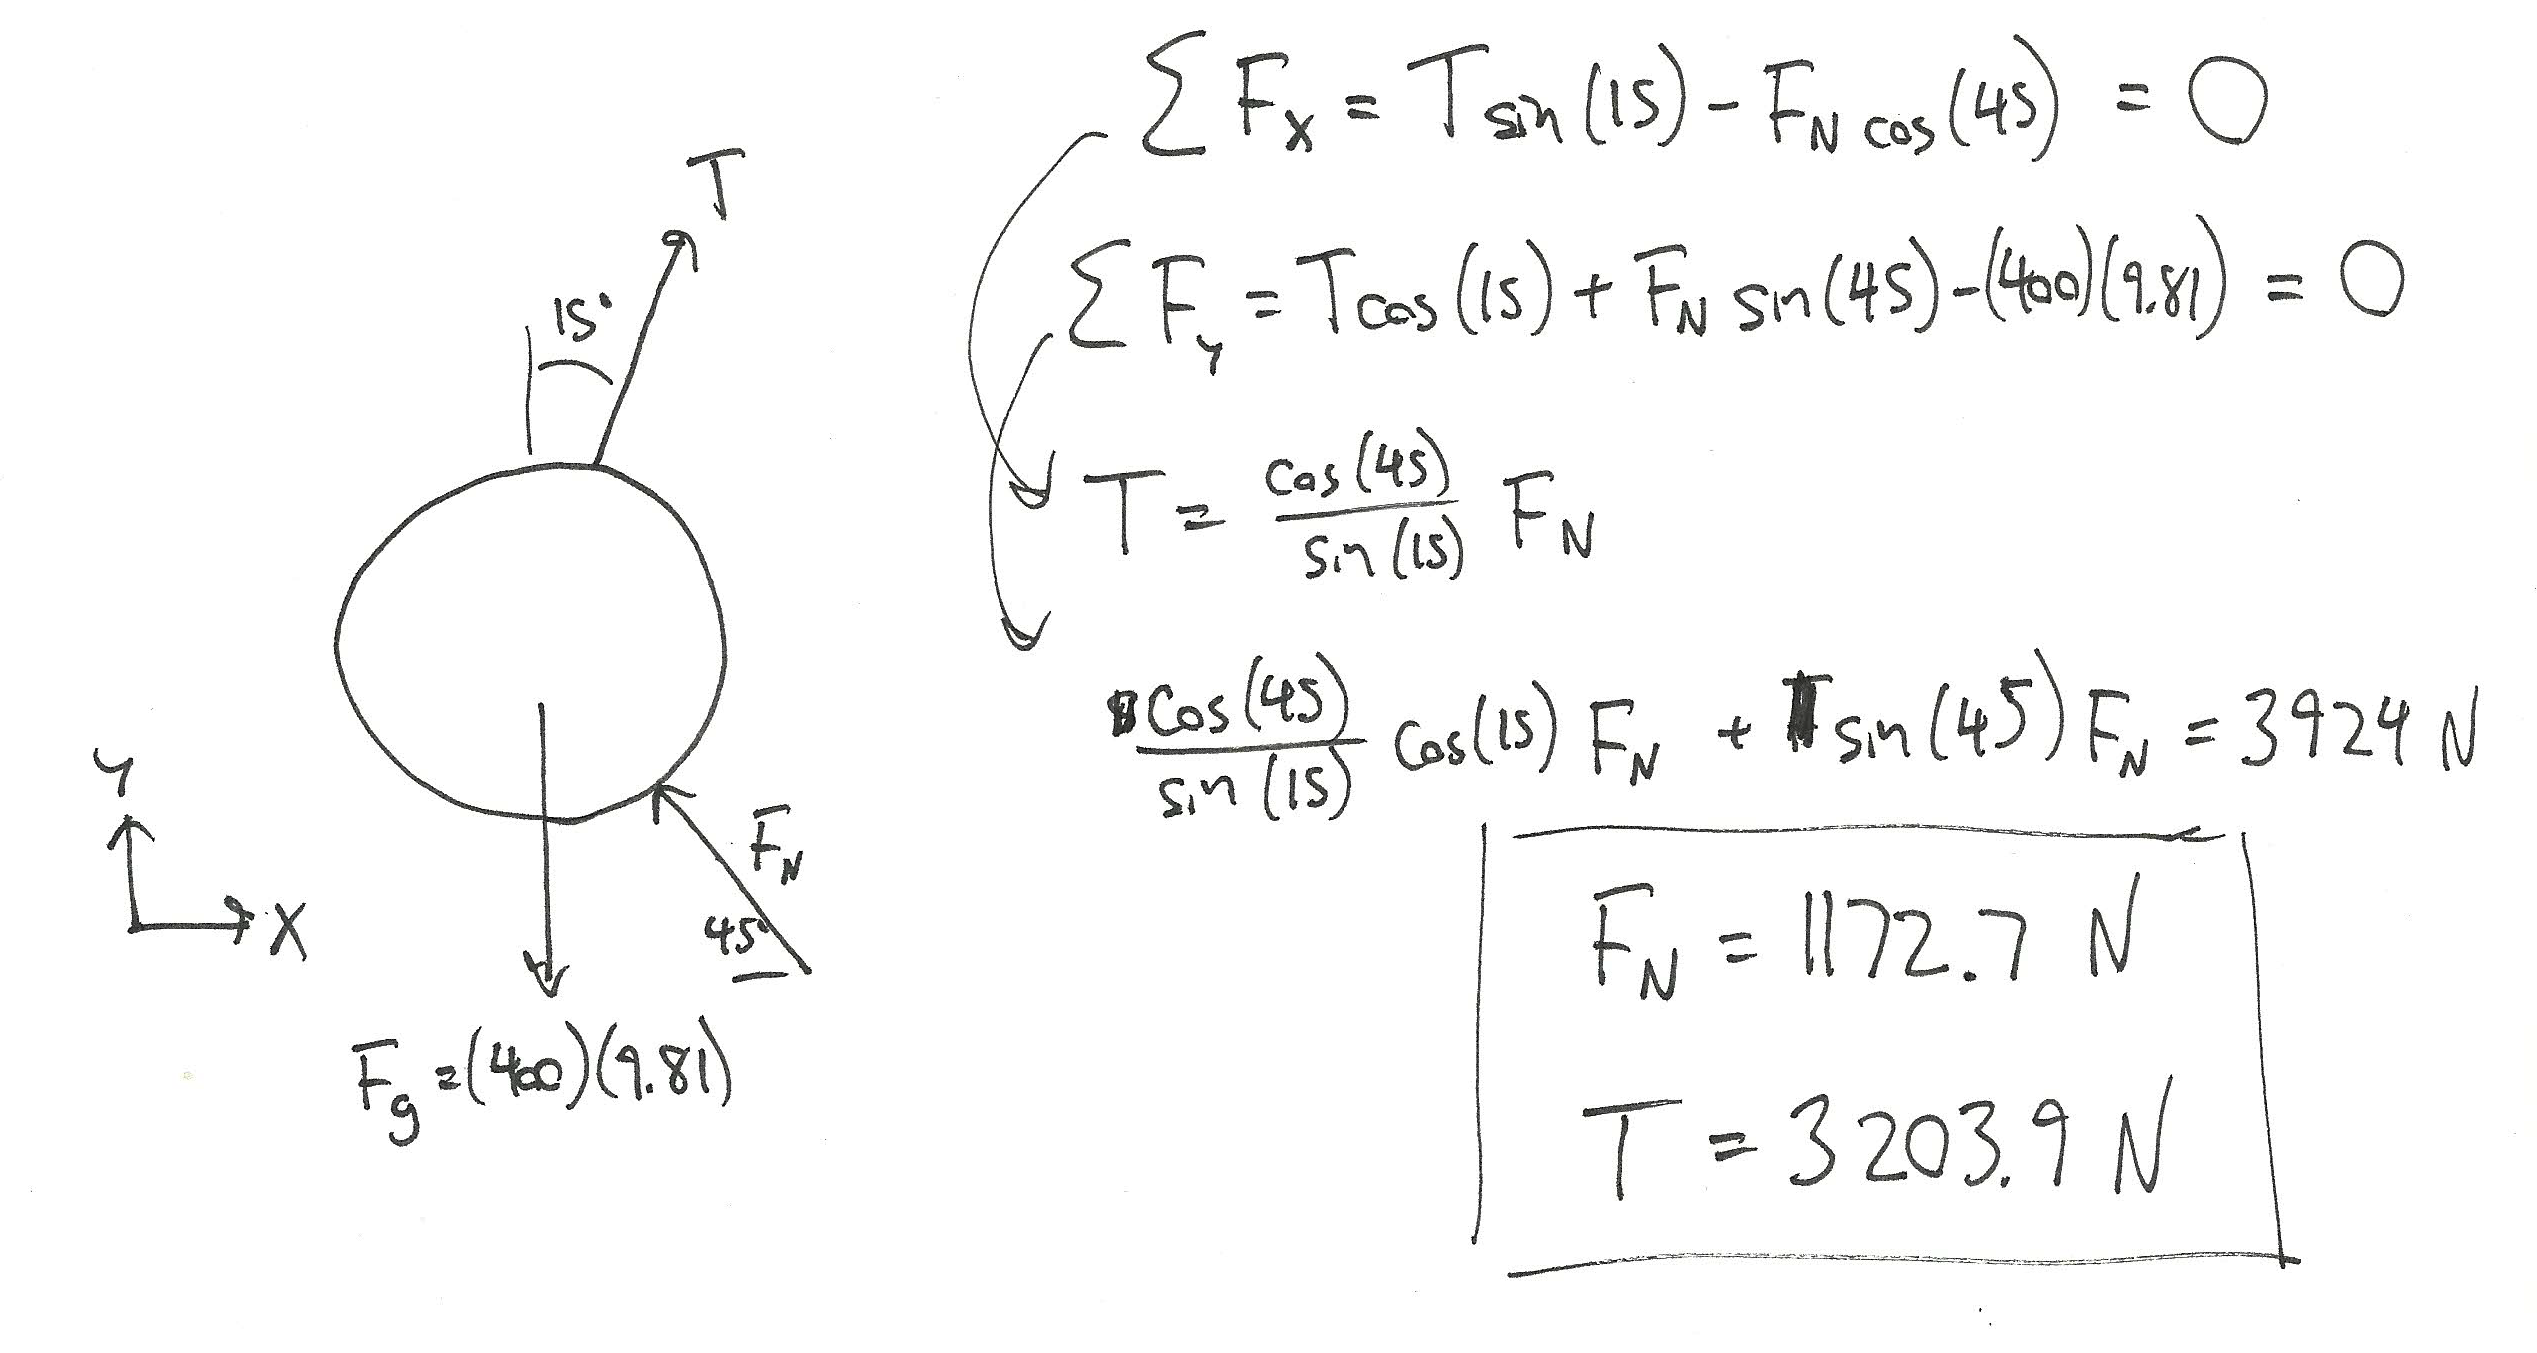 T
15°
Y
X
F_N
45°
F_g = (400)(9.81)
Σ F_x = T sin(15) - F_N cos(45) = 0
Σ F_y = T cos(15) + F_N sin(45) - (400)(9.81) = 0
T = cos(45)/sin(15) F_N
cos(45)/sin(15) cos(15) F_N + sin(45) F_N = 3924 N
F_N = 1172.7 N
T = 3203.9 N